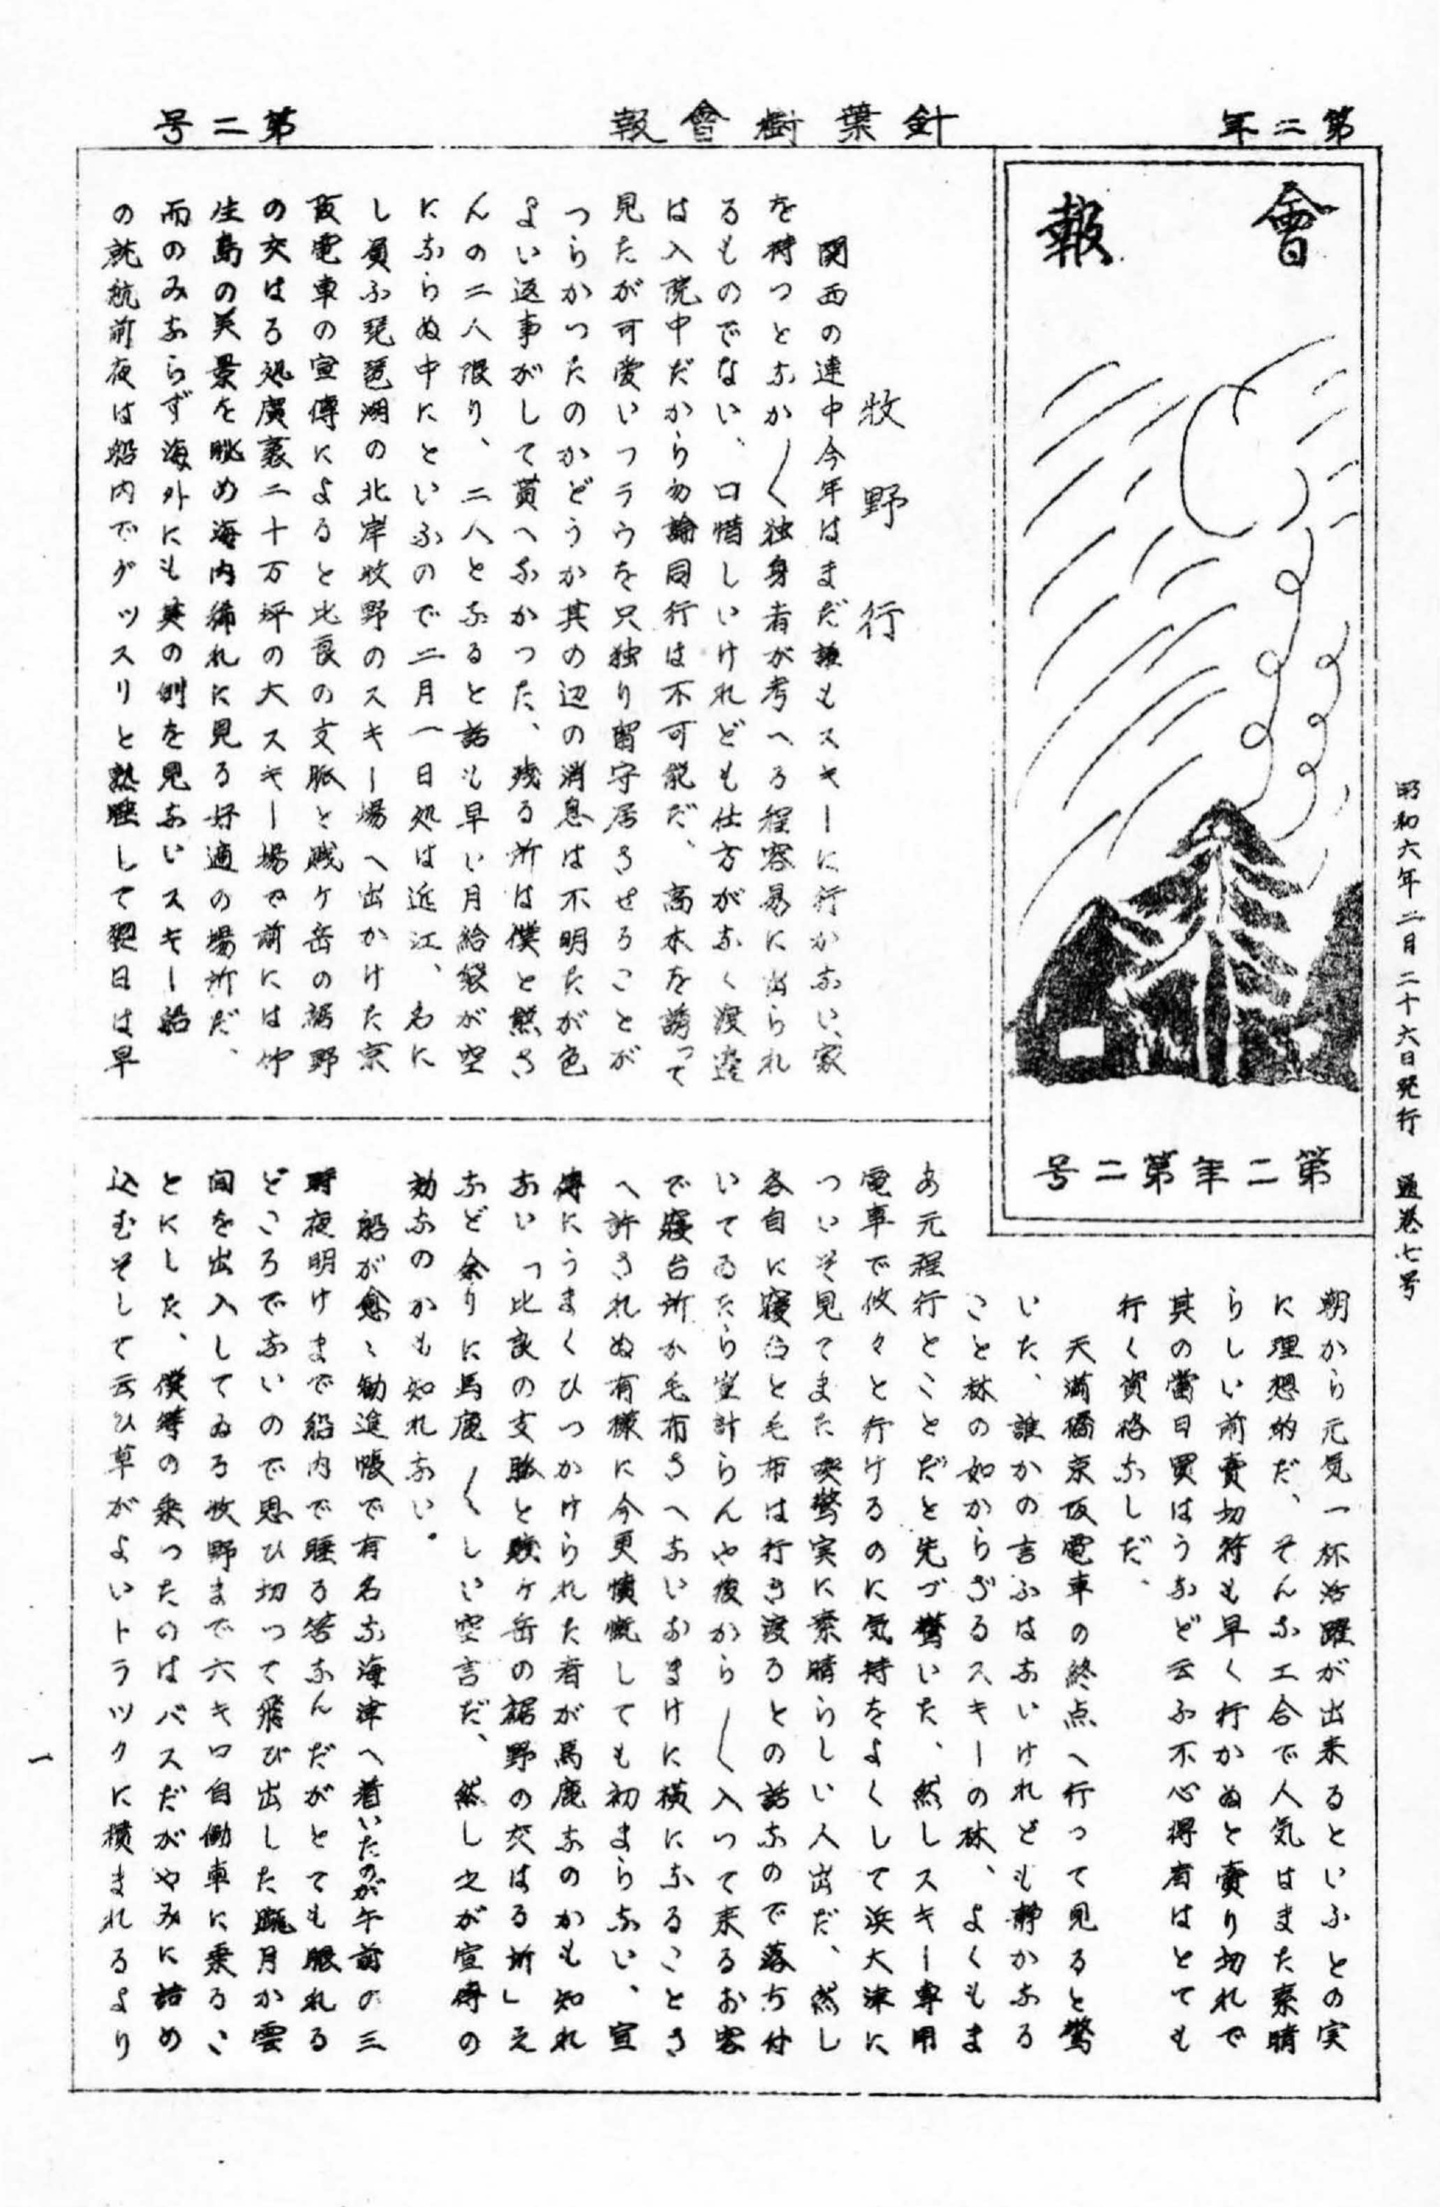 第二年
針葉樹會報
第二号
會報
第二年第二号
昭和六年二月二十六日発行　通巻七号
牧野行
関西の連中今年はまだ誰もスキーに行かない、家
を持つとなか〱独身者が考へる程容易に出られ
るものでない、口惜しいけれども仕方がなく渡邉
は入院中だから勿論同行は不可能だ、高木を誘って
見たが可愛いフラウを只独り留守居させることが
つらかつたのかどうか其の辺の消息は不明だが色
よい返事がして貰へなかつた、残る所は僕と熊さ
んの二人限り、二人となると話も早い月給袋が空
にならぬ中にといふので二月一日処は近江、名に
し負ふ琵琶湖の北岸牧野のスキー場へ出かけた京
阪電車の宣傳によると比良の支脈と賤ケ岳の裾野
の交はる処廣袤二十万坪の大スキー場で前には竹
生島の美景を眺め海内稀れに見る好適の場所だ、
而のみならず海外にも其の例を見ないスキー船
の就航前夜は船内でグッスリと熟睡して翌日は早
朝から元気一杯活躍が出来るといふとの実
に理想的だ、そんな工合で人気はまた素晴
らしい前賣切符も早く行かぬと賣り切れで
其の當日買はうなど云ふ不心得者はとても
行く資格なしだ、
天満橋京阪電車の終点へ行って見ると驚
いた、誰かの言ふはないけれども静かなる
こと林の如からざるスキーの林、よくもま
あ元程行とことだと先づ驚いた、然しスキー専用
電車で攸々と行けるのに気持をよくして浜大津に
ついて見てまた喫驚実に素晴らしい人出だ、然し
各自に寝台と毛布は行き渡るとの話なので落ち付
いてゐたら豈計らんや後から〱入って来るお客
で寝台所か毛布さへないおまけに横になることさ
へ許されぬ有様に今更憤慨しても初まらない、宣
傳にうまくひつかけられた者が馬鹿なのかも知れ
ない「比良の支脈と賤ヶ岳の裾野の交はる所」え
など余りに馬鹿〱しい空言だ、然し之が宣傳の
効なのかも知れない。
船が愈々勧進帳で有名な海津へ着いたのが午前の三
時夜明けまで船内で睡る筈なんだがとても眠れる
どころでないので思ひ切つて飛び出した朧月か雲
間を出入してゐる牧野まで六キロ自働車に乗るこ
とにした、僕等の乗つたのはバスだがやみに詰め
込むそして云ひ草がよいトラックに積まれるより
一